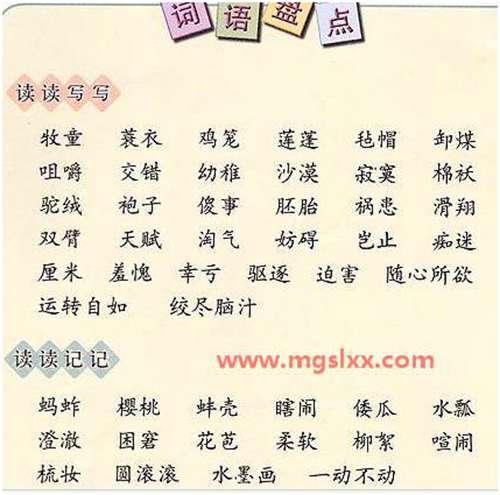 词语盘点
读读写写
牧童 蓑衣 鸡笼 莲蓬 毡帽 卸煤
咀嚼 交错 幼稚 沙漠 寂寞 棉袄
驼绒 袍子 傻事 胚胎 祸患 滑翔
双臂 天赋 淘气 妨碍 岂止 痴迷
厘米 羞愧 幸亏 驱逐 迫害 随心所欲
运转自如 绞尽脑汁
读读记记
www.mgslxx.com
蚂蚱 樱桃 蚌壳 瞎闹 倭瓜 水瓢
澄澈 困窘 花苞 柔软 柳絮 喧闹
梳妆 圆滚滚 水墨画 一动不动